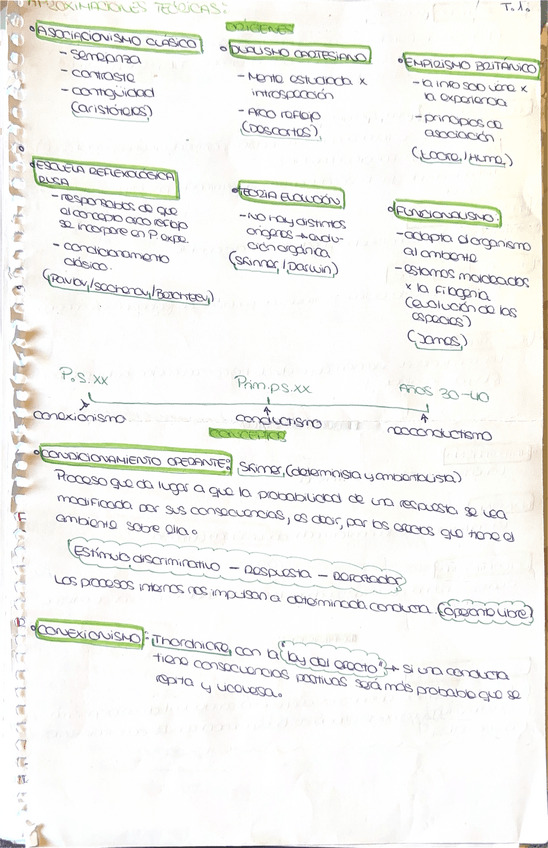 APROXIMACIONES TEÓRICAS:
T.1.
ORÍGENES
ASOCIACIONISMO CLÁSICO
- semejanza
- contraste
- contigüidad
(Aristóteles)
DUALISMO CARTESIANO
- Mente estudiada x
introspección
- Arco reflejo
(Descartes)
EMPIRISMO BRITÁNICO
- la info solo viene x
la experiencia
- principios de
asociación
(Locke/Hume)
ESCUELA REFLEXOLÓGICA
RUSA
- responsables de que
el concepto arco reflejo
se incorpore en P. expe.
- condicionamiento
clásico.
(Pavlov/Sechenov/Bechterev)
TEORÍA EVOLUCIÓN
- No hay distintos
orígenes → evolu-
ción orgánica
(Skinner/Darwin)
FUNCIONALISMO:
- adapta el organismo
al ambiente
- estamos moldeados
x la filogenia
(evolución de las
especies)
(James)
P.s.xx
Prim.ps.xx
Años 30-40
conexionismo
conductismo
neoconductismo
CONCEPTOS
CONDICIONAMIENTO OPERANTE: Skinner, (determinista y ambientalista)
Proceso que da lugar a que la probabilidad de una respuesta se vea
modificada por sus consecuencias, es decir, por los efectos que tiene el
ambiente sobre ella.
Estímulo discriminativo - Respuesta - Reforzador
Los procesos internos nos impulsan a determinada conducta. (operante libre)
CONEXIONISMO: Thorndike, con la "ley del efecto" → si una conducta
tiene consecuencias positivas será más probable que se
repita y